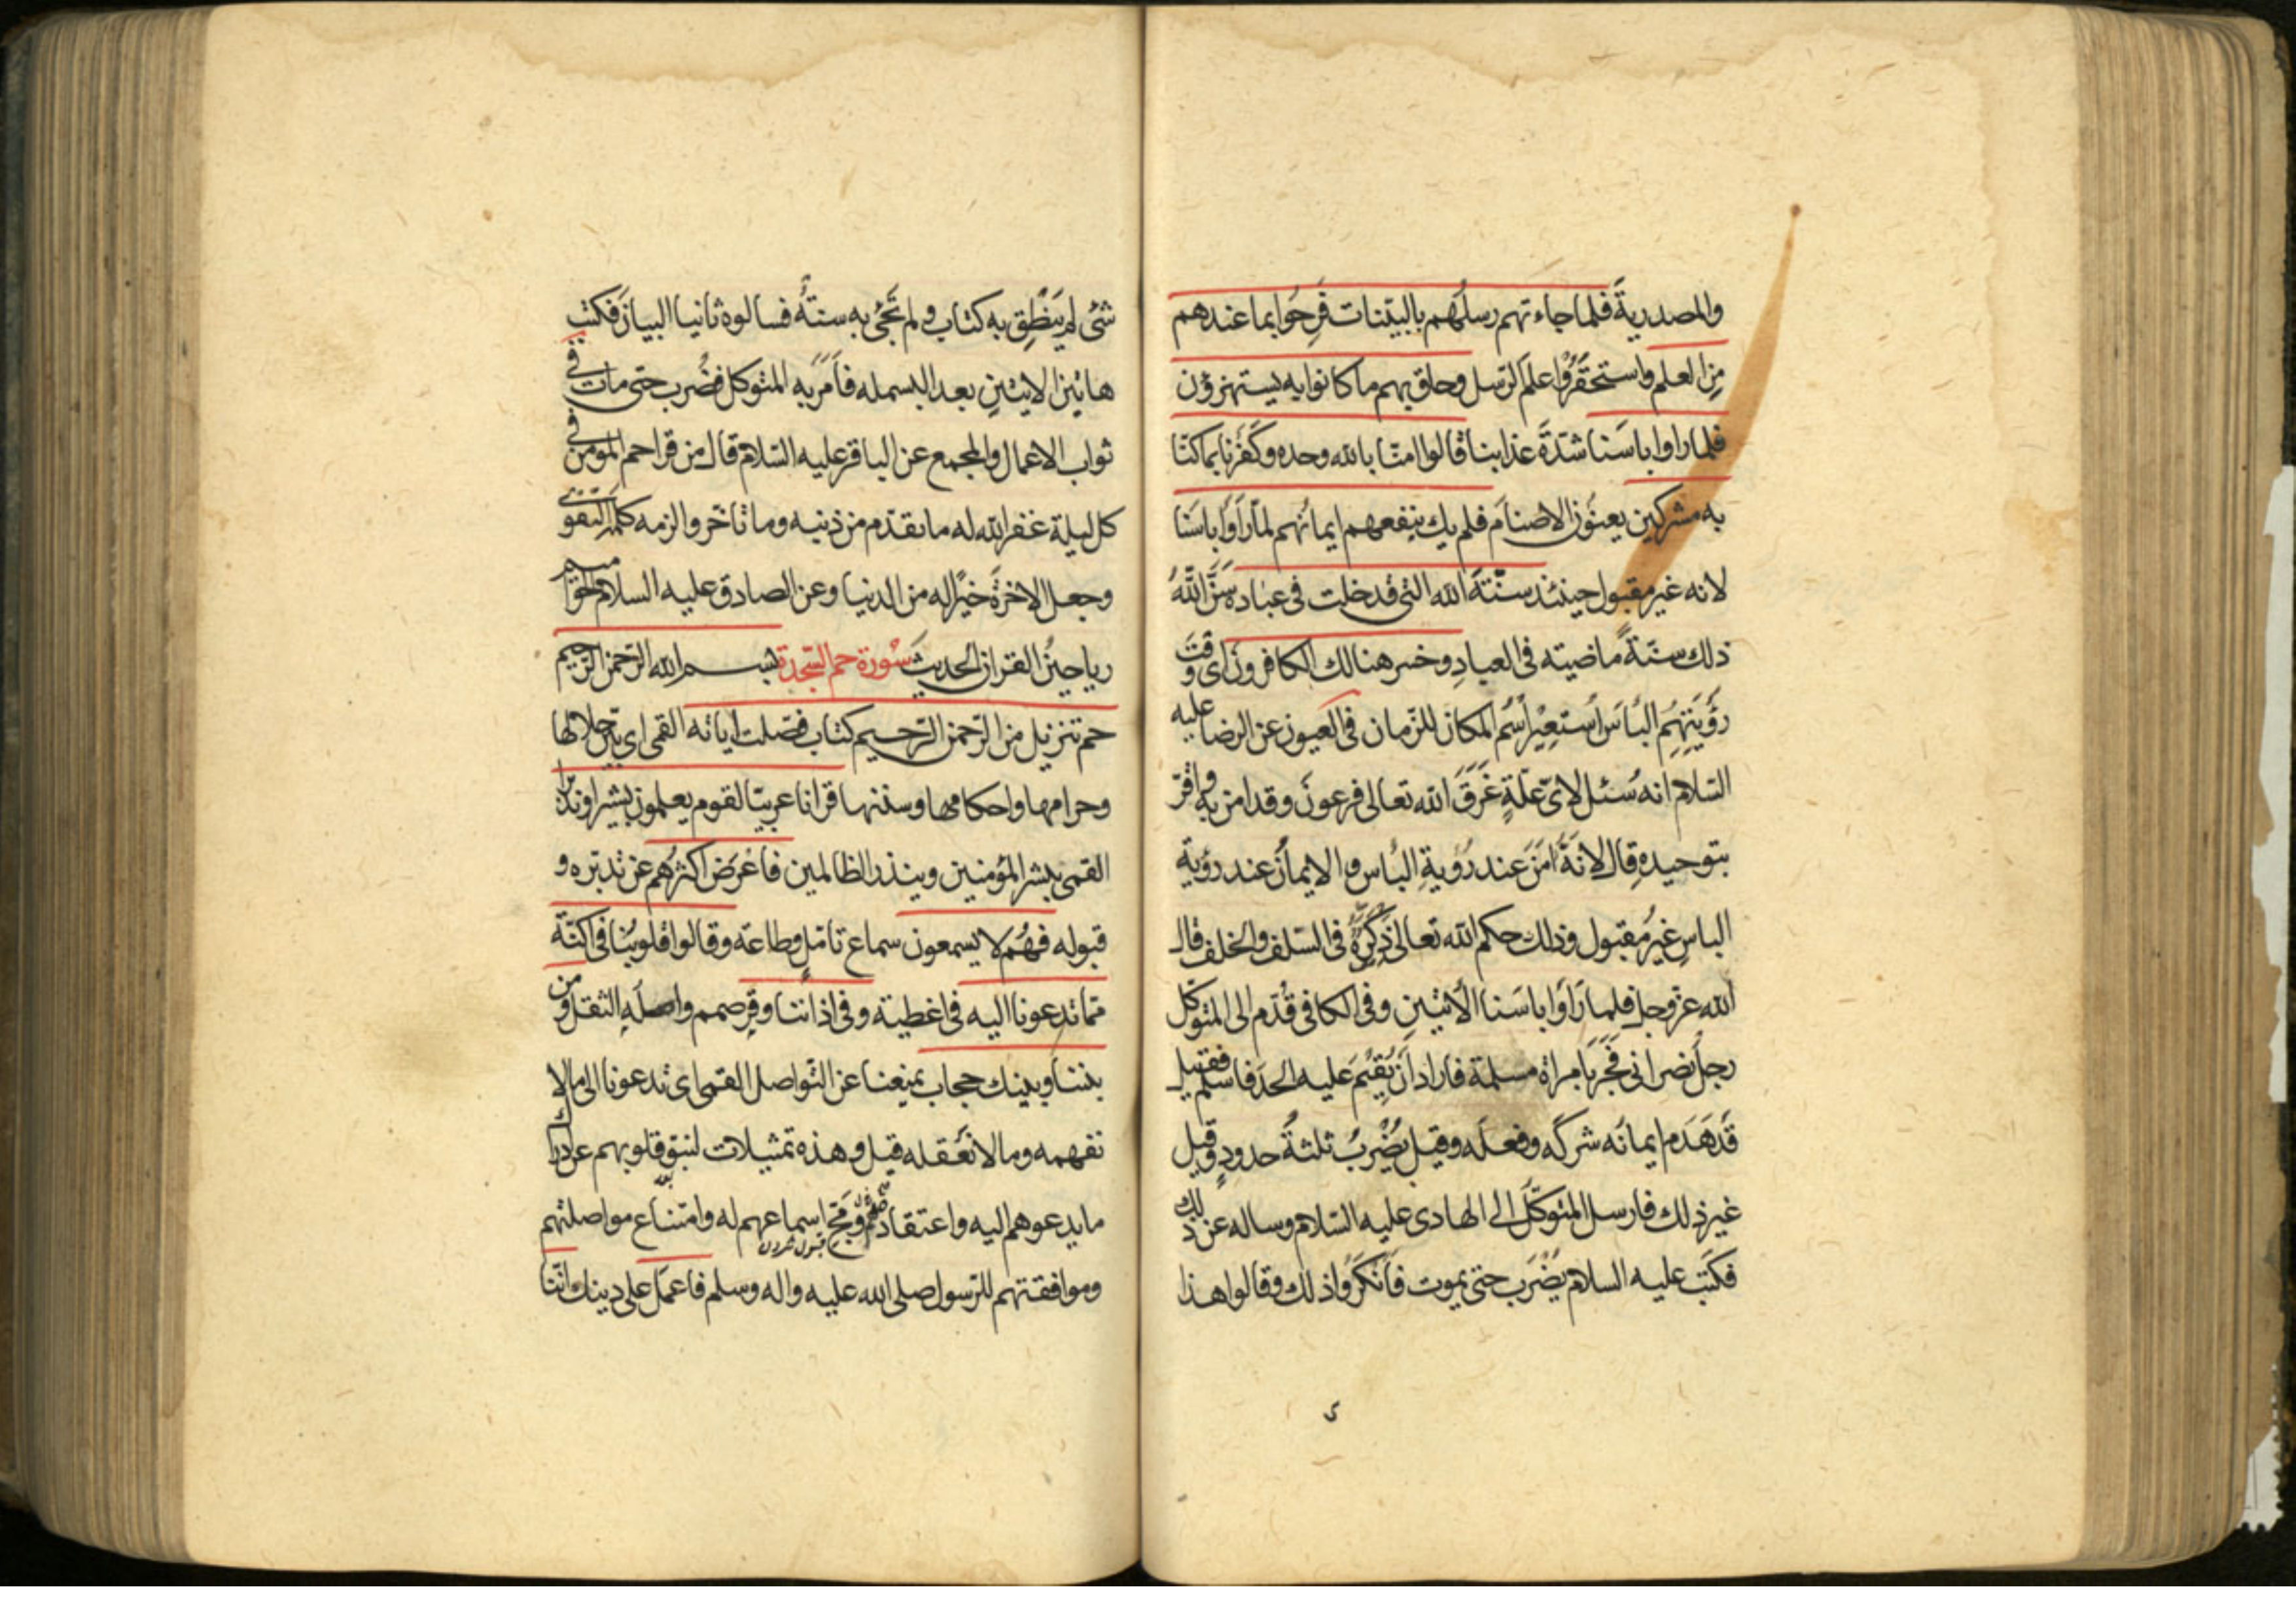 والمصدرية فلما جاءتهم رسلهم بالبينات فرحوا بما عندهم
من العلم واستحقروا علم الرسل وحاق بهم ما كانوا به يستهزؤن
فلما راوا باسنا شدة عذابنا قالوا امنا بالله وحده وكفرنا بما كنا
به مشركين يعنون الاصنام فلم يك ينفعهم ايمانهم لما راوا باسنا
لانه غير مقبول حينئذ سنة الله التي قد خلت في عباده سن الله
ذلك سنة ماضيته في العباد وخسر هنالك الكافرون اى وقت
رؤيتهم الباس استعير اسم المكان للزمان في العيون عن الرضا عليه
السلام انه سئل لاى علة غرق الله تعالى فرعون وقد امن به واقر
بتوحيده قال لانه امن عند رؤية الباس والايمان عند رؤية
الباس غير مقبول وذلك حكم الله تعالى ذكره في السلف والخلف قال
الله عز وجل فلما راوا باسنا الآيتين وفى الكافى قدم الى المتوكل
رجل نصرانى فجر بامراة مسلمة فاراد ان يقيم عليه الحد فاسلم فقيل
قد هدم ايمانه شركه وفعله وقيل يضرب ثلثة حدود وقيل
غير ذلك فارسل المتوكل الى الهادى عليه السلام وساله عن ذلك
فكتب عليه السلام يضرب حتى يموت فانكروا ذلك وقالوا هذا
شئ لم ينطق به كتاب ولم تجئ به سنة فسالوه ثانيا البيان فكتب
هاتين الايتين بعد البسمله فامر به المتوكل فضرب حتى مات في
ثواب الاعمال والمجمع عن الباقر عليه السلام قال من قرا حم المومن في
كل ليلة غفر الله له ما تقدم من ذنبه وما تاخر والزمه كلمة التقوى
وجعل الاخرة خيرا له من الدنيا وعن الصادق عليه السلام الحواميم
رياحين القران الحديث سورة حم السجدة بسم الله الرحمن الرحيم
حم تنزيل من الرحمن الرحيم كتاب فصلت اياته القمى اى بين حلالها
وحرامها واحكامها وسننها قرانا عربيا لقوم يعلمون بشيرا ونذيرا
القمى يبشر المؤمنين وينذر الظالمين فاعرض اكثرهم عن تدبره و
قبوله فهم لا يسمعون سماع تامل وطاعة وقالوا قلوبنا في اكنة
مما تدعونا اليه في اغطية وفى اذاننا وقر صمم واصله الثقل ومن
بيننا وبينك حجاب يمنعنا عن التواصل القمى اى تدعونا الى ما لا
نفهمه وما لا نعقله قيل وهذه تمثيلات لنبو قلوبهم عن ادراك
ما يدعوهم اليه واعتقادهم ومج اسماعهم له وامتناع مواصلتهم
وموافقتهم للرسول صلى الله عليه واله وسلم فاعمل على دينك اننا